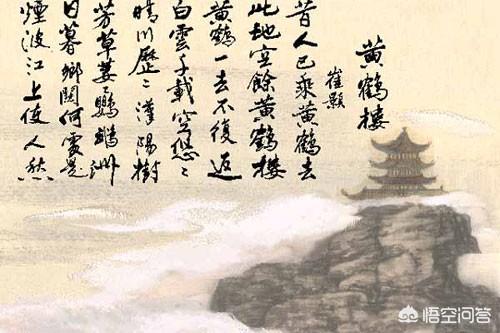 黄鹤楼
崔颢
昔人已乘黄鹤去
此地空餘黄鹤楼
黄鹤一去不復返
白雲千載空悠〻
晴川歷〻漢陽樹
芳草萋〻鹦鹉洲
日暮鄉關何處是
煙波江上使人愁
悟空问答